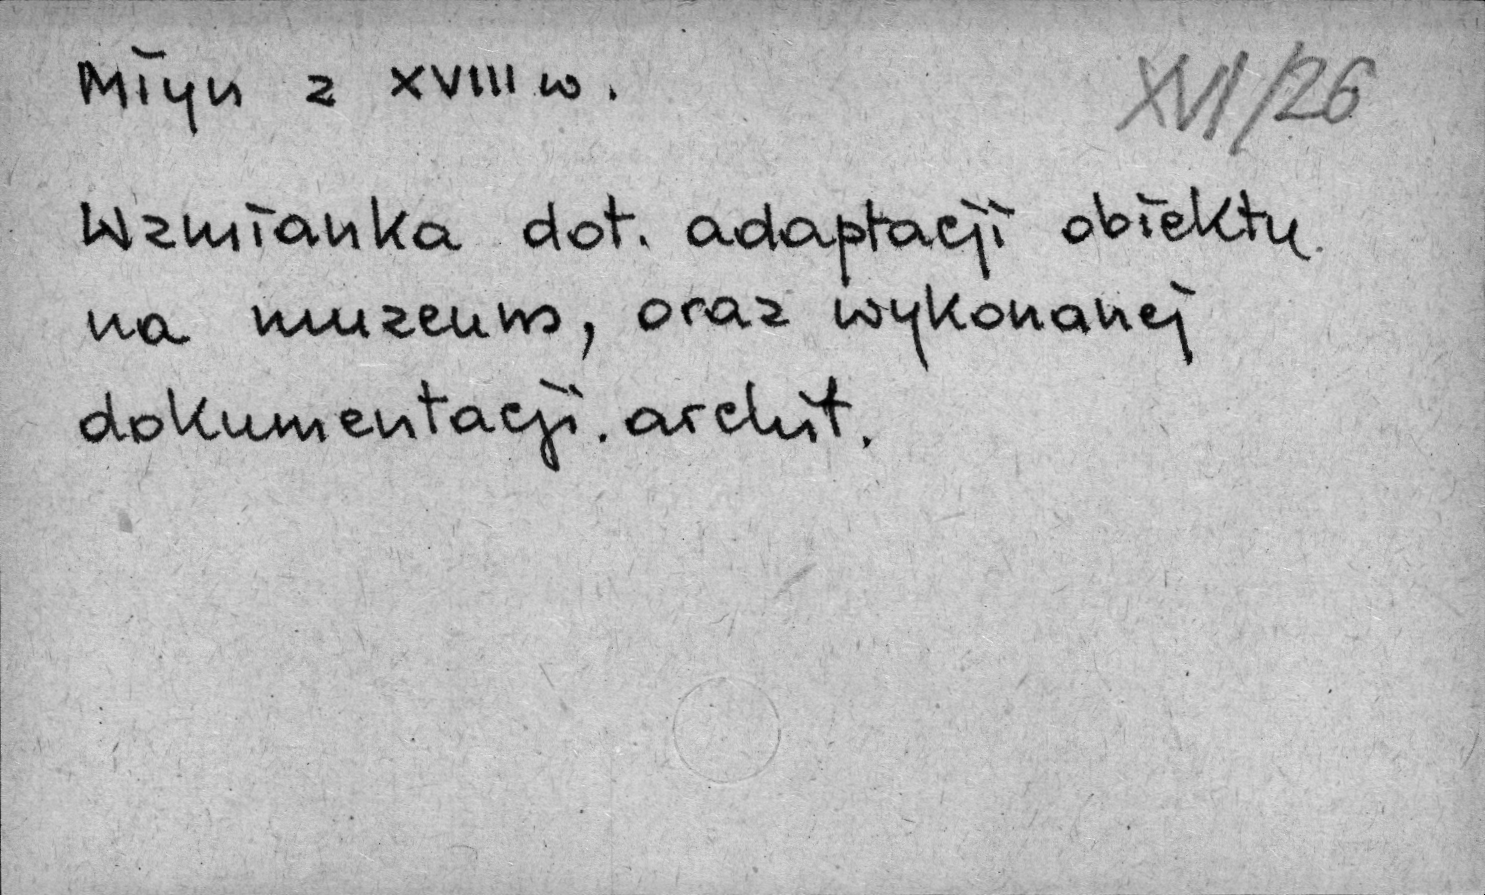 Młyn z XVIII w.
XVI/26
Wzmianka dot. adaptacji obiektu
na muzeum, oraz wykonanej
dokumentacji. archit.